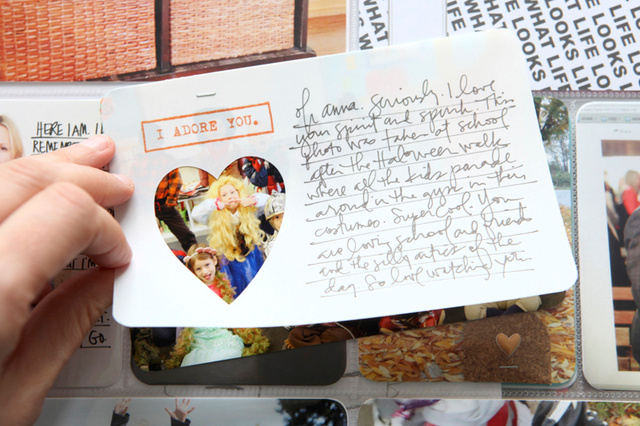 HERE I AM.
I ADORE YOU.
oh anna. seriously. I love
your spirit and spunk. This
photo was taken at school
after the Haloween walk
where all the kids parade
around in the gym in their
costumes. Super cool. You
are loving school and friends
and the silly antics of the
day. So love watching you.
Go.
WHAT
WHAT LIFE LOOKS
WHAT LIFE LOOKS
WHAT LIFE LOOKS
LIFE LOOKS